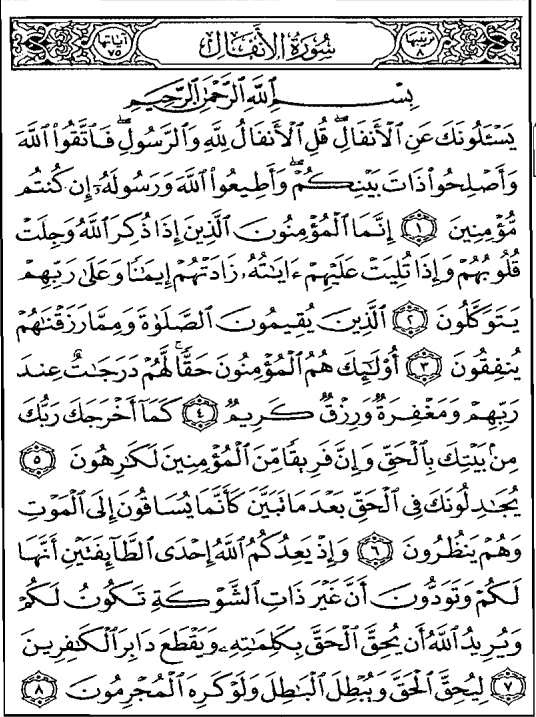 ترتيبها ٨ سُورَةُ الأَنفَالِ آياتها ٧٥
بِسْمِ ٱللَّهِ ٱلرَّحْمَٰنِ ٱلرَّحِيمِ
يَسْـَٔلُونَكَ عَنِ ٱلْأَنفَالِۖ قُلِ ٱلْأَنفَالُ لِلَّهِ وَٱلرَّسُولِۖ فَٱتَّقُوا۟ ٱللَّهَ
وَأَصْلِحُوا۟ ذَاتَ بَيْنِكُمْۖ وَأَطِيعُوا۟ ٱللَّهَ وَرَسُولَهُۥٓ إِن كُنتُم
مُّؤْمِنِينَ ١ إِنَّمَا ٱلْمُؤْمِنُونَ ٱلَّذِينَ إِذَا ذُكِرَ ٱللَّهُ وَجِلَتْ
قُلُوبُهُمْ وَإِذَا تُلِيَتْ عَلَيْهِمْ ءَايَٰتُهُۥ زَادَتْهُمْ إِيمَٰنًا وَعَلَىٰ رَبِّهِمْ
يَتَوَكَّلُونَ ٢ ٱلَّذِينَ يُقِيمُونَ ٱلصَّلَوٰةَ وَمِمَّا رَزَقْنَٰهُمْ
يُنفِقُونَ ٣ أُو۟لَٰٓئِكَ هُمُ ٱلْمُؤْمِنُونَ حَقًّاۚ لَّهُمْ دَرَجَٰتٌ عِندَ
رَبِّهِمْ وَمَغْفِرَةٌ وَرِزْقٌ كَرِيمٌ ٤ كَمَآ أَخْرَجَكَ رَبُّكَ
مِنۢ بَيْتِكَ بِٱلْحَقِّ وَإِنَّ فَرِيقًا مِّنَ ٱلْمُؤْمِنِينَ لَكَٰرِهُونَ ٥
يُجَٰدِلُونَكَ فِى ٱلْحَقِّ بَعْدَ مَا تَبَيَّنَ كَأَنَّمَا يُسَاقُونَ إِلَى ٱلْمَوْتِ
وَهُمْ يَنظُرُونَ ٦ وَإِذْ يَعِدُكُمُ ٱللَّهُ إِحْدَى ٱلطَّآئِفَتَيْنِ أَنَّهَا
لَكُمْ وَتَوَدُّونَ أَنَّ غَيْرَ ذَاتِ ٱلشَّوْكَةِ تَكُونُ لَكُمْ
وَيُرِيدُ ٱللَّهُ أَن يُحِقَّ ٱلْحَقَّ بِكَلِمَٰتِهِۦ وَيَقْطَعَ دَابِرَ ٱلْكَٰفِرِينَ
٧ لِيُحِقَّ ٱلْحَقَّ وَيُبْطِلَ ٱلْبَٰطِلَ وَلَوْ كَرِهَ ٱلْمُجْرِمُونَ ٨